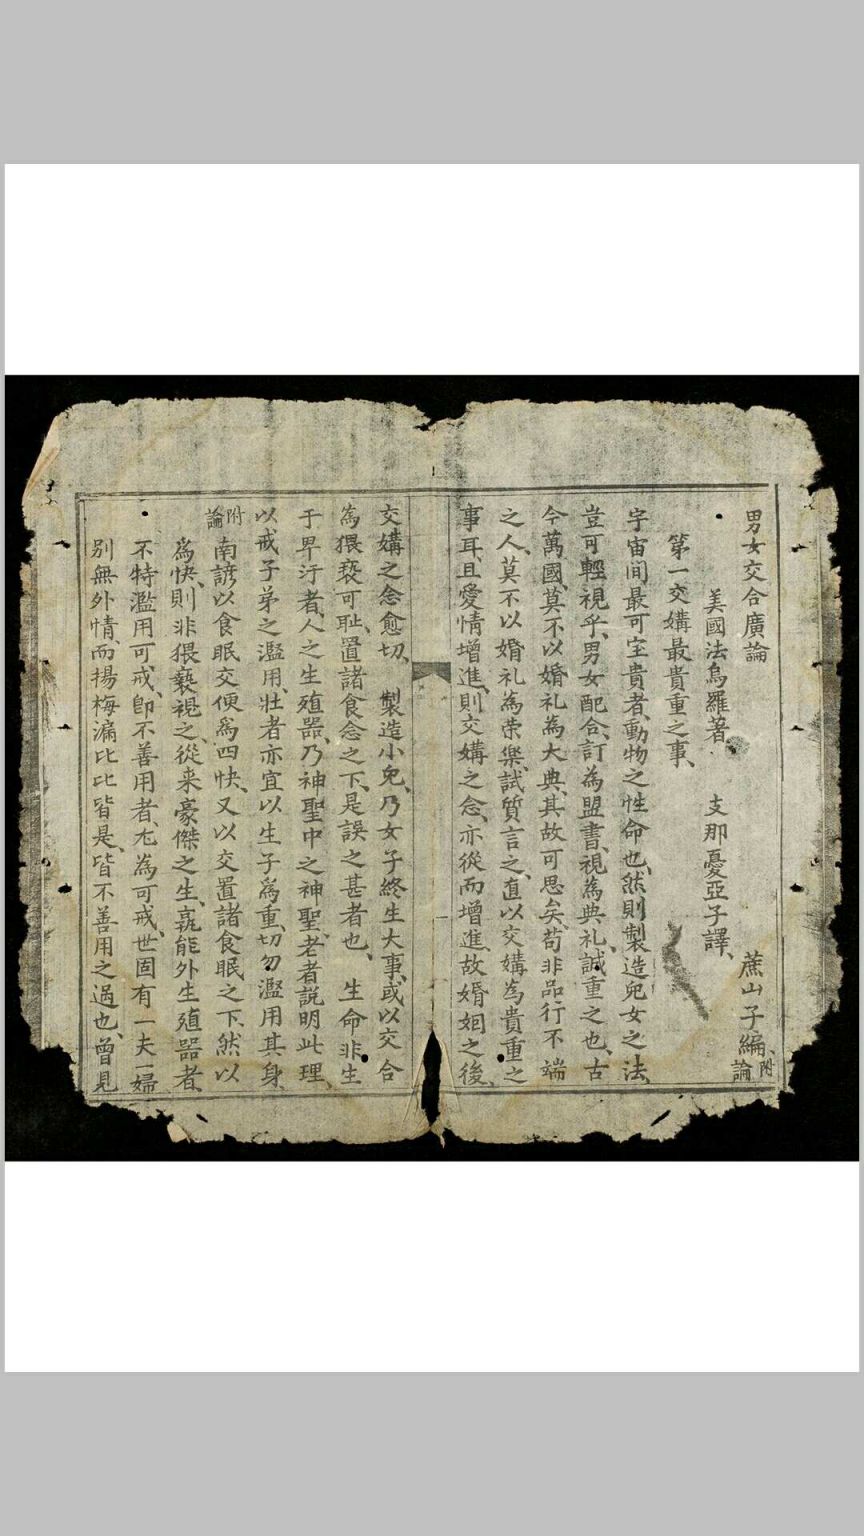 男女交合廣論
美國法烏羅著 支那憂亞子譯、 蔗山子編、附論
第一交媾最貴重之事、
宇宙间最可宝貴者、動物之性命也、然則製造兒女之法、
豈可輕視乎、男女配合、訂為盟書、視為典礼、誠重之也、古
今萬國、莫不以婚礼為大典、其故可思矣、苟非品行不端
之人、莫不以婚礼為荣樂、試质言之、直以交媾為貴重之
事耳、且愛情增進、則交媾之念、亦從而增進、故婚姻之後、
交媾之念愈切、 製造小兒、乃女子終生大事、或以交合
為猥亵可耻、置諸食念之下、是誤之甚者也、 生命非生
于卑汙者、人之生殖器、乃神聖中之神聖、老者説明此理、
以戒子弟之濫用、壮者亦宜以生子為重、切勿濫用其身、
附論 南諺以食眠交便為四快、又以交置諸食眠之下、然以
為快、則非猥亵視之、從来豪傑之生、孰能外生殖器者、
不特濫用可戒、卽不善用者、尤為可戒、世固有一夫一婦
别無外情、而揚梅漏比比皆是、皆不善用之過也、曾見